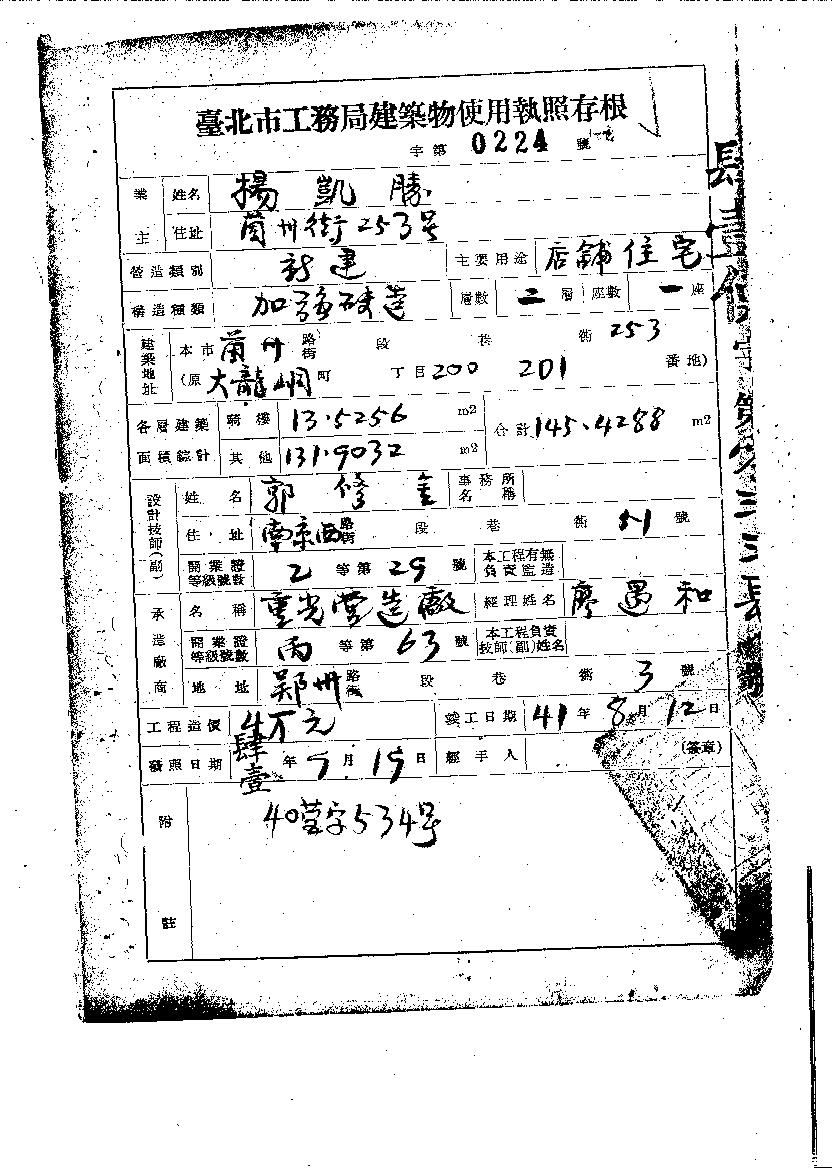 臺北市工務局建築物使用執照存根
字第 0224 號
業主 姓名 楊凱勝
住址 蘭州街253号
營造類別 新建 主要用途 店舖住宅
構造種類 加強磚造 層數 二 層 座數 一 座
建築地址 本市 蘭州 路街 段 巷 衖 253
(原 大龍峒 町 丁目 200 201 番地)
各層建築面積綜計 騎樓 13.5256 m2 合計 145.4288 m2
其他 131.9032 m2
設計技師(副) 姓名 郭修 事務所名稱
住址 南京西 路街 段 巷 衖 51 號
開業證等級號數 乙 等第 29 號 本工程有無負責監造
承造廠商 名稱 重光營造廠 經理姓名 廖愚和
開業證等級號數 丙 等第 63 號 本工程負責技師(副)姓名
地址 鄭州 路街 段 巷 衖 3 號
工程造價 4万元 竣工日期 41年8月12日
發照日期 肆壹年9月19日 經手人 (簽章)
附註 40營字534号